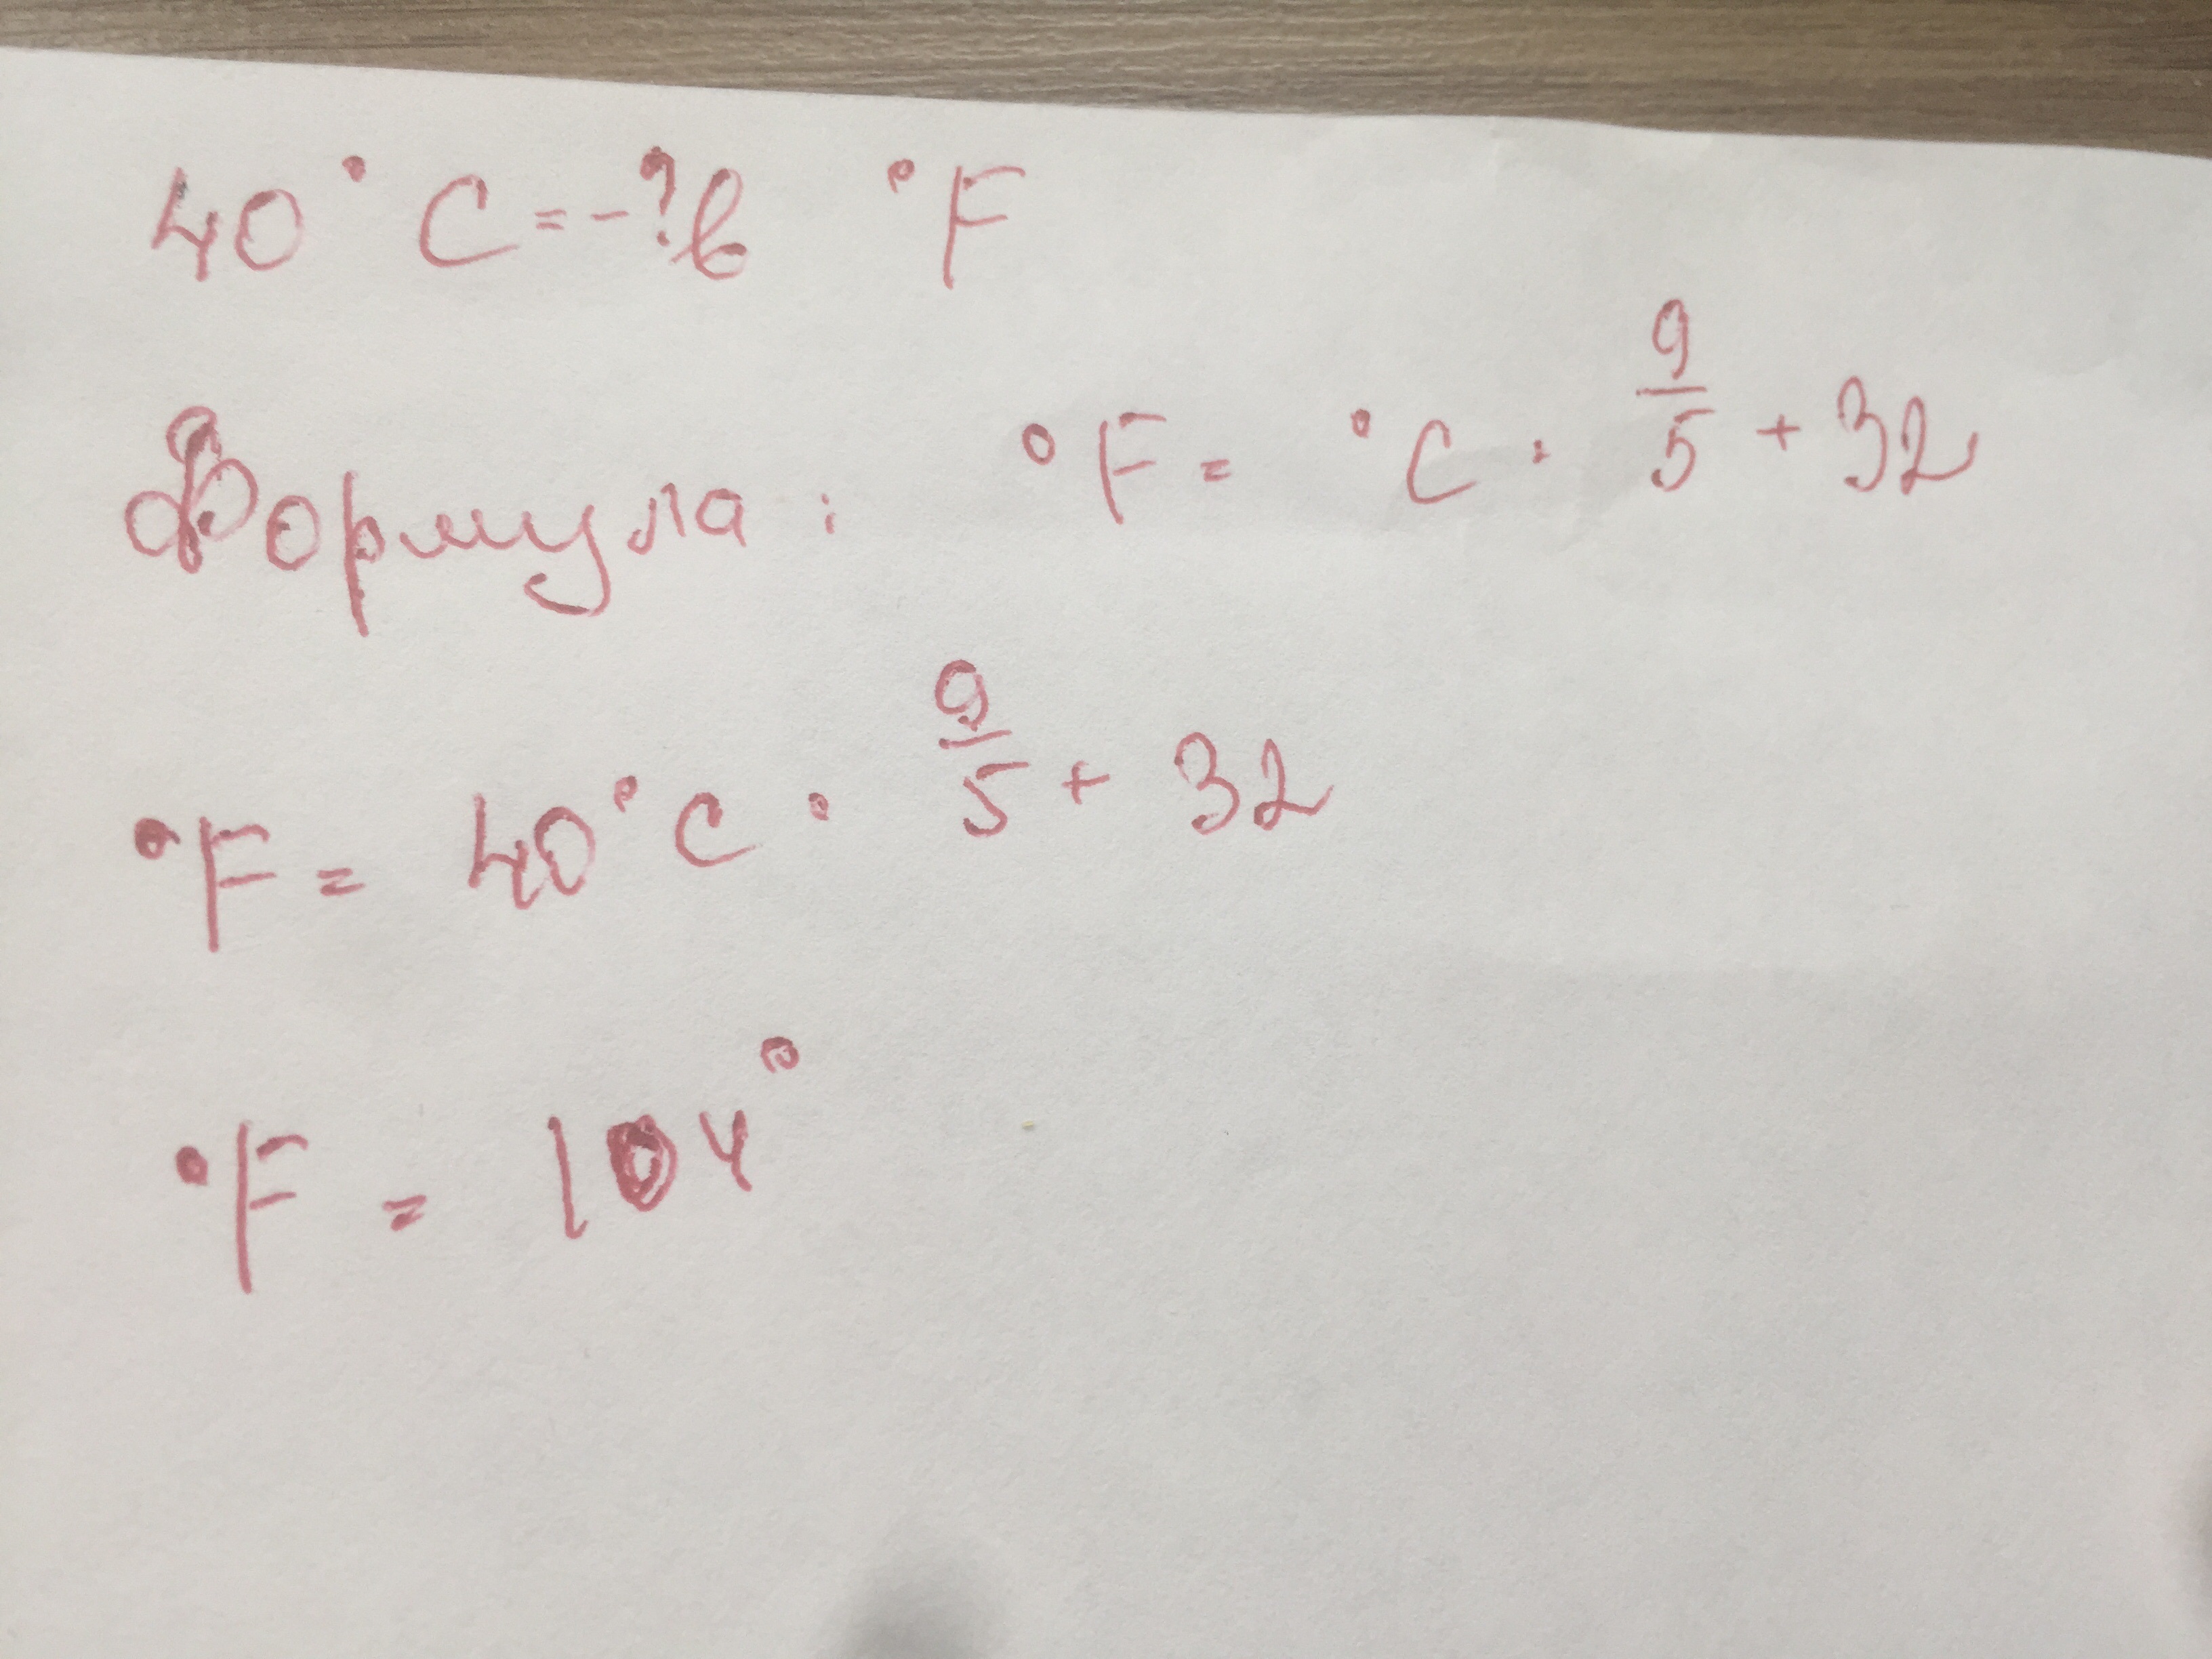 40°C=-?в °F
Формула: °F = °C · 9/5 + 32
°F = 40°C · 9/5 + 32
°F = 104°